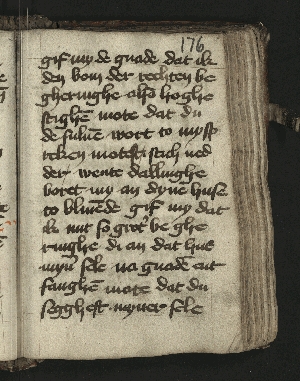 176
gif my de gnade dat ik
den bom der rechten be
gheringhe also hoghe
stighen mote dat du
de suluē wort to my sp
reken motest stich ned
der wente dallinghe
boret my an dyne husz
to bliuēde gif my dat
ik mit so grot' be ghe
ringhe di an dat hus
myn' sele na gnadē ent
fanghē mote dat du
seggh est myner sele